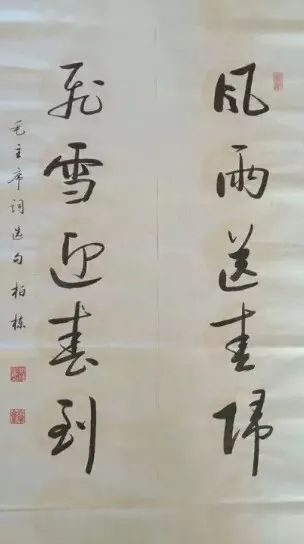 风雨送春归
飞雪迎春到
毛主席词选句 柏栋